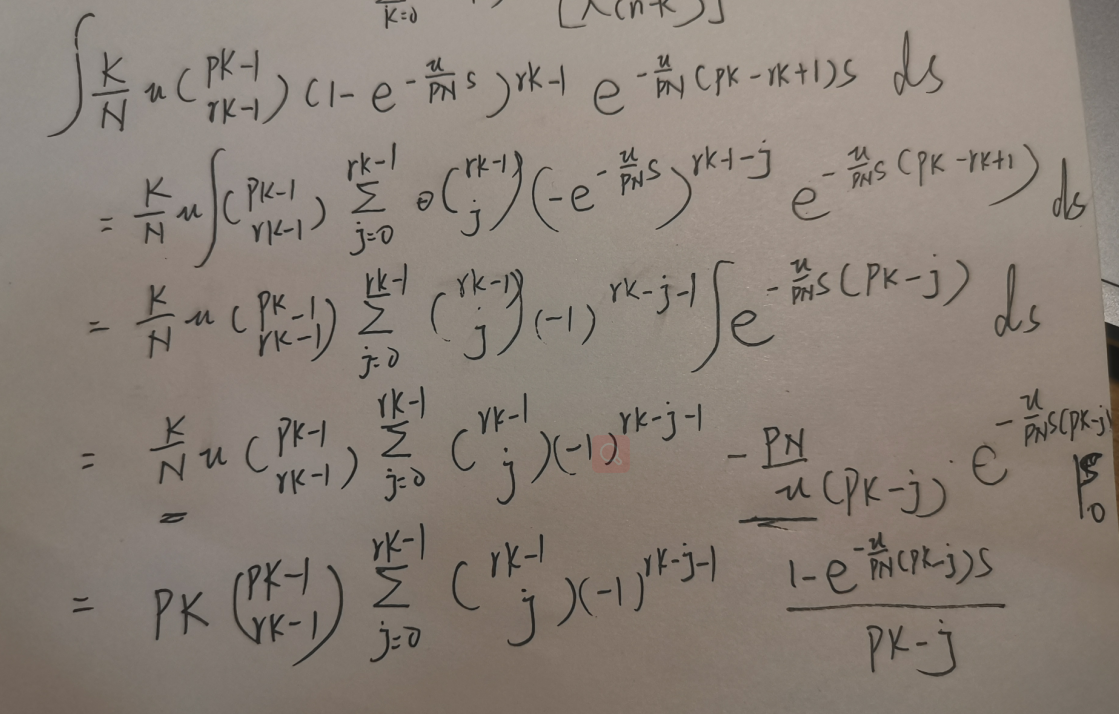 K=0 [λ(n-k)]
∫ K/N u (PK-1 rK-1) (1-e^{-u/PN s})^{rK-1} e^{-u/PN (PK-rK+1)s} ds
= K/N u ∫ (PK-1 rK-1) Σ_{j=0}^{rK-1} (rK-1 j) (-e^{-u/PN s})^{rK-1-j} e^{-u/PN s(PK-rK+1)} ds
= K/N u (PK-1 rK-1) Σ_{j=0}^{rK-1} (rK-1 j) (-1)^{rK-j-1} ∫ e^{-u/PN s(PK-j)} ds
= K/N u (PK-1 rK-1) Σ_{j=0}^{rK-1} (rK-1 j) (-1)^{rK-j-1} -PN/u(PK-j) e^{-u/PN s(PK-j)} |_0^s
= PK (PK-1 rK-1) Σ_{j=0}^{rK-1} (rK-1 j) (-1)^{rK-j-1} 1-e^{-u/PN (PK-j)s} / PK-j